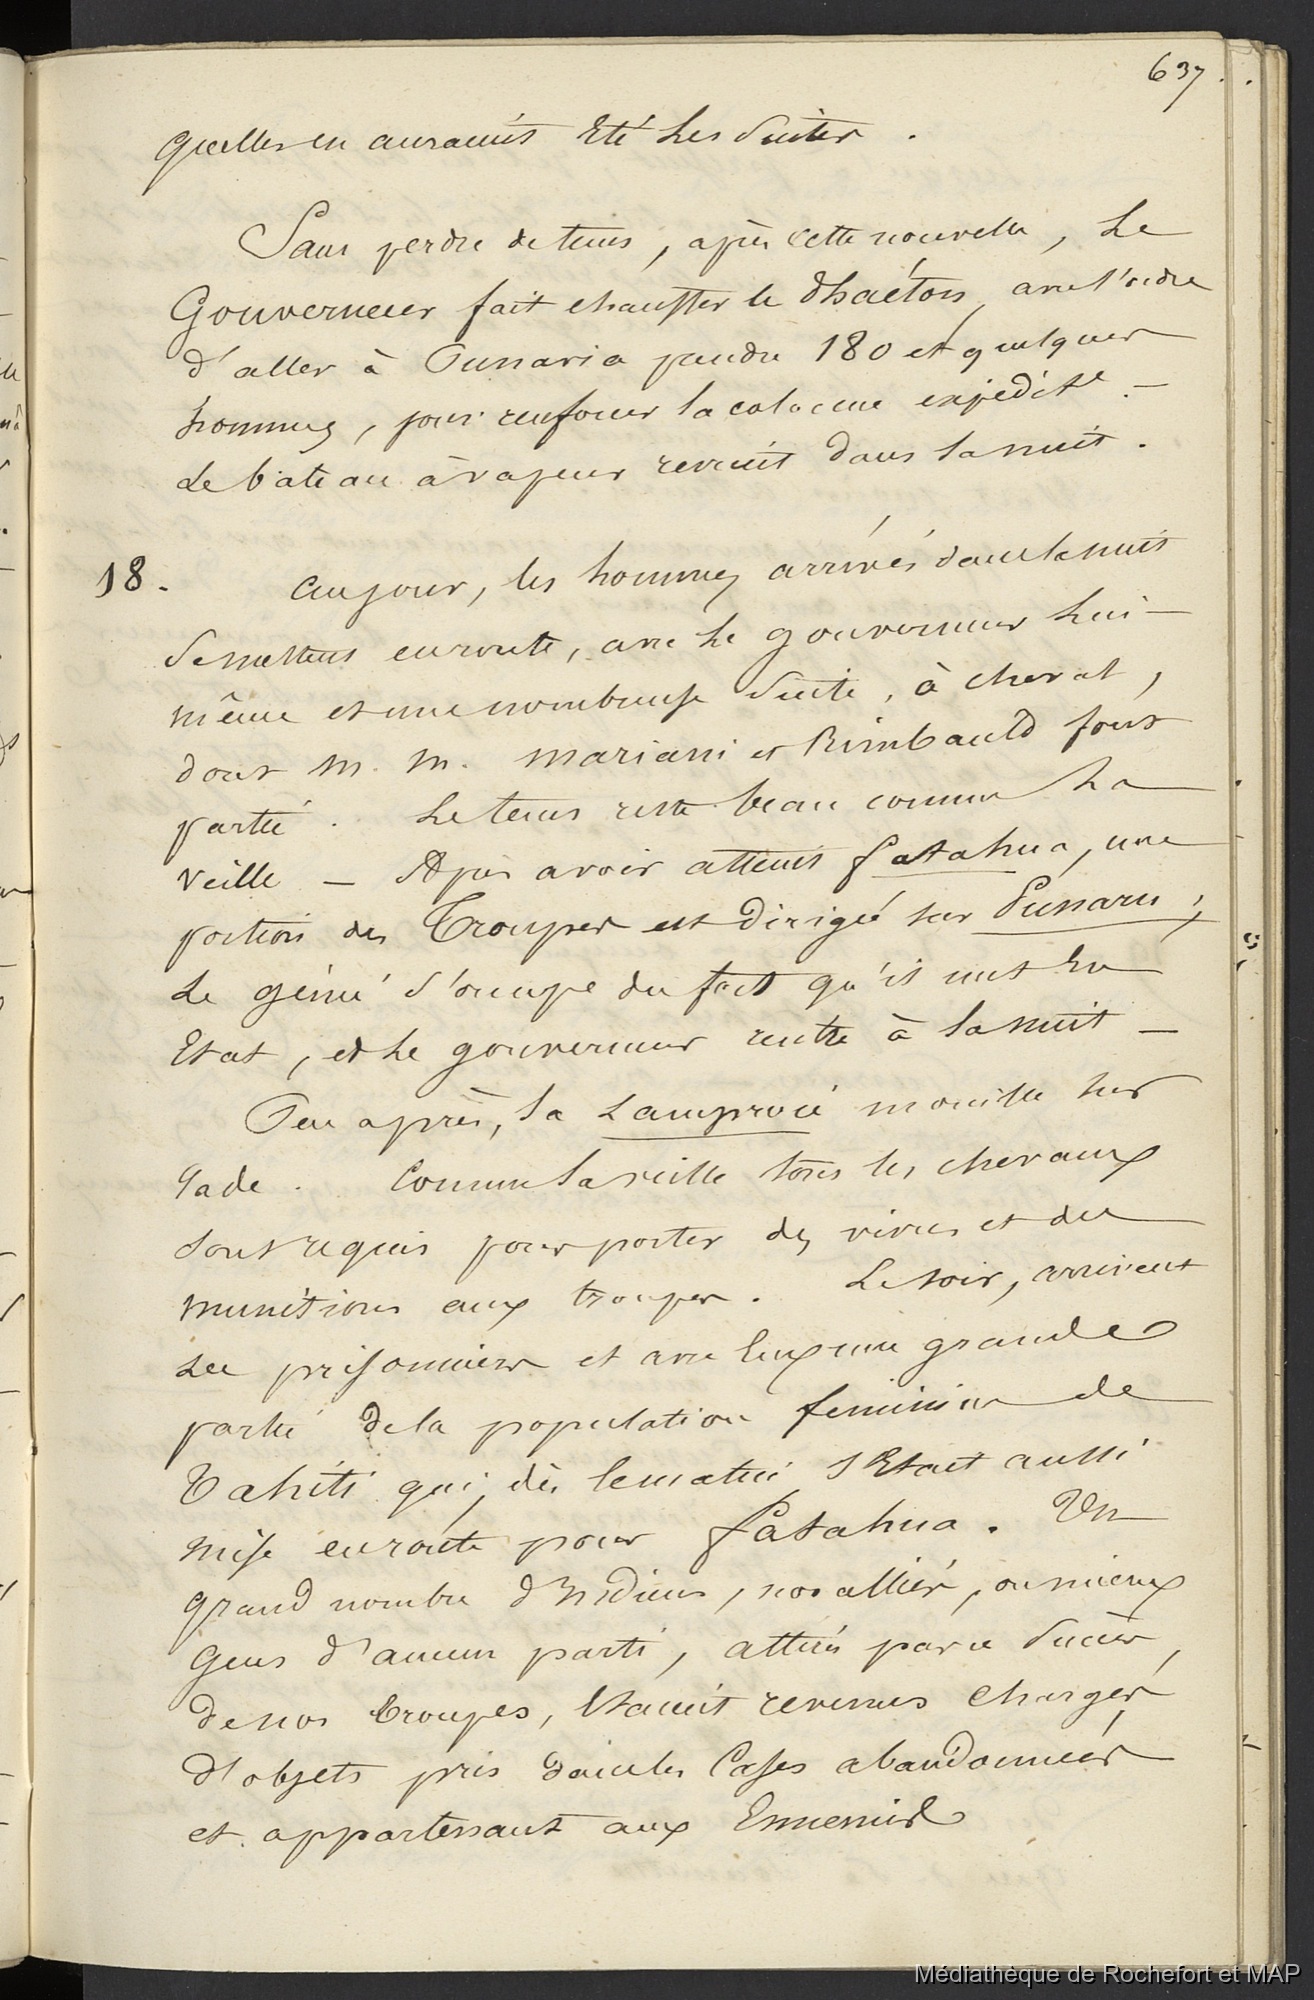 637.
quelles en auraient été les suites.
Sans perdre de tems, après cette nouvelle, le
Gouverneur fait chauffer le Phaéton, avec l'ordre
d'aller à Punavia prendre 180 et quelques
hommes, pour renforcer la colonne expédite. —
Le bateau à vapeur revint dans la nuit.
18. au jour, les hommes arrivés dans la nuit
se mettent en route, avec le gouverneur lui-
même et une nombreuse suite, à cheval,
dont m. m. mariani et Rimbauld font
partie. Le tems reste beau comme la
veille — Après avoir atteint fatahua, une
portion des Troupes est dirigée sur Punaru,
Le génie s'occupe du fort qu'il met en
Etat, et le gouverneur rentre à la nuit —
Peu après, la Lamproie mouille sur
rade. Comme la veille tous les chevaux
sont requis pour porter des vivres et des
munitions aux troupes. Le soir, arrivent
Les prisonniers et avec Eux une grande
partie de la population feminine de
Tahiti qui, dès le matin s'Etait aussi
mise en route pour fatahua. Un
grand nombre d'Indiens, nos alliés, ou mieux
gens d'aucun parti, attirés par ce succès,
de nos troupes, Etaient revenus chargés
d'objets pris dans les Cases abandonnées
et appartenant aux Ennemis
Médiathèque de Rochefort et MAP